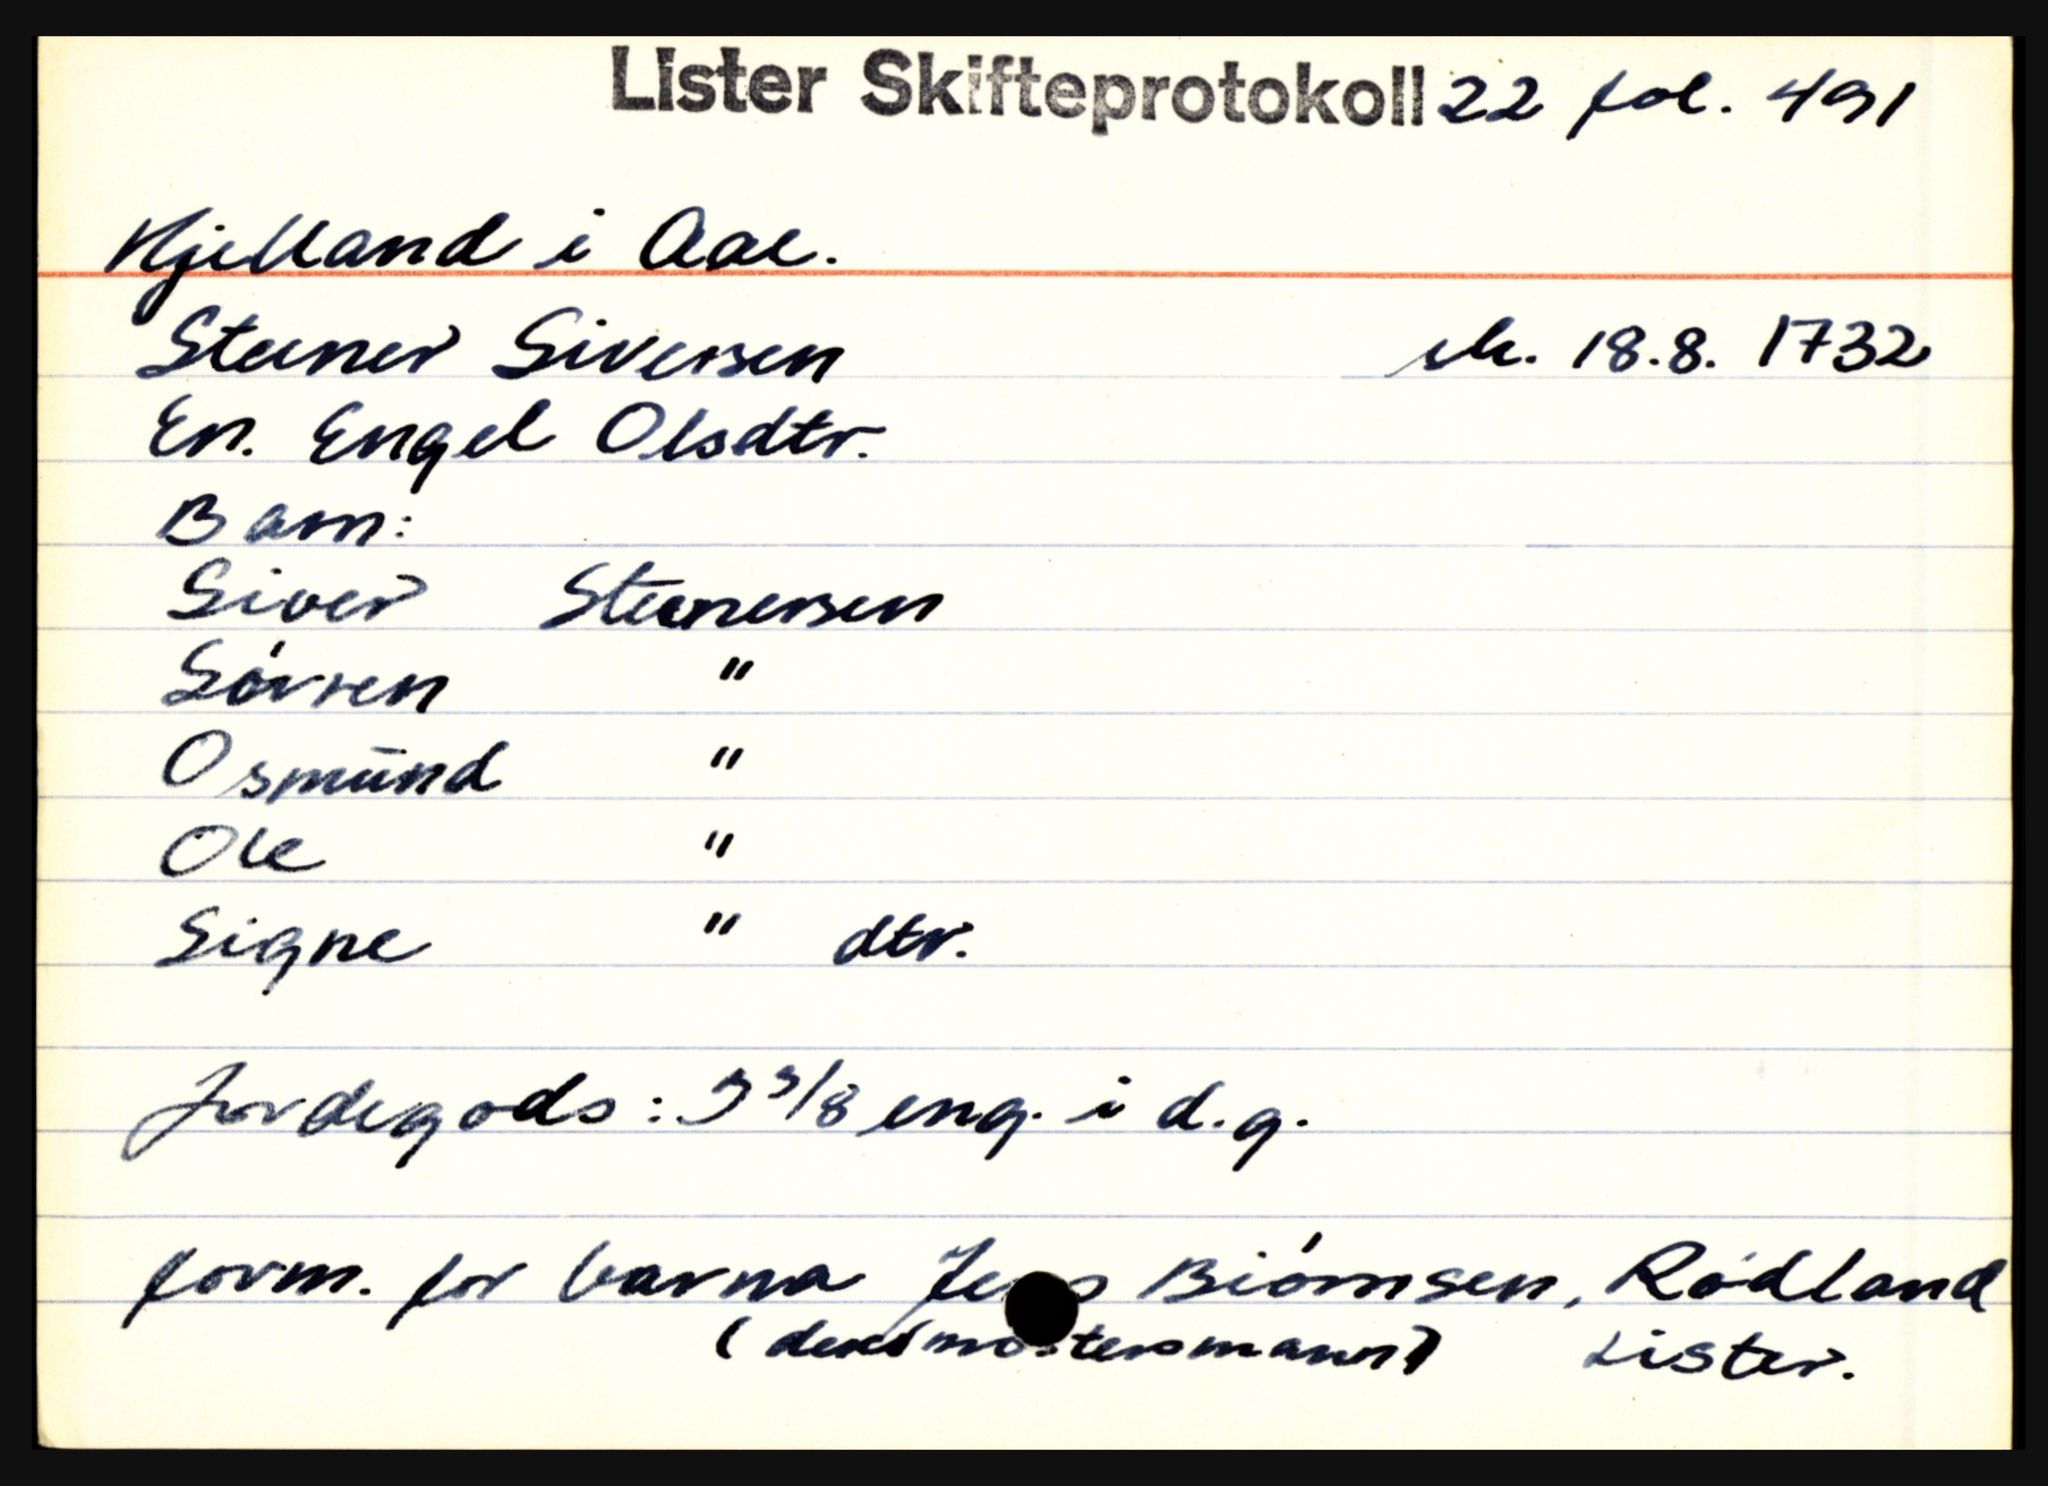 Lister Skifteprotokoll 22 fol. 491
Kjelland i Aal.
Steener Siversen sk. 18.8. 1732
En. Engel Olsdtr.
Barn:
Siver Steenersen
Sövren "
Osmund "
Ole "
Signe " dtr.
Jordegods: 3 3/8 eng. i d.g.
form. for barna Jens Biörnsen, Rödland
(deres mostersmann) Lister.